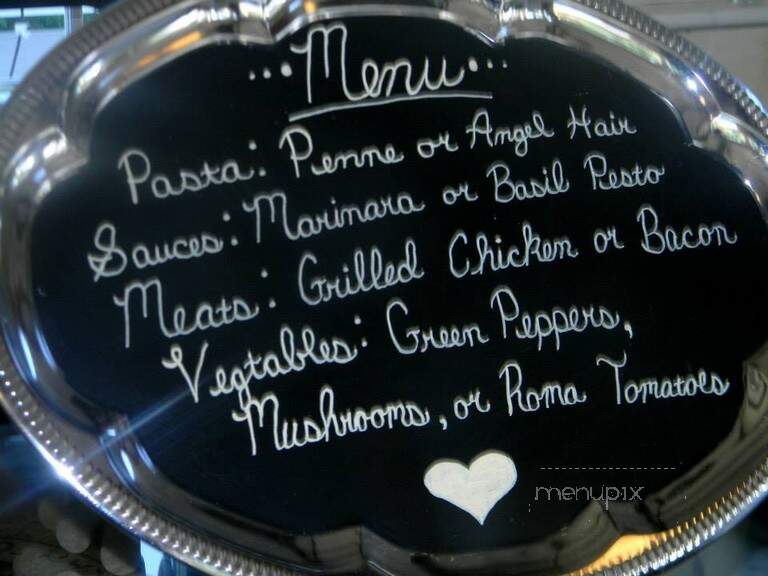 ...Menu...
Pasta: Penne or Angel Hair
Sauces: Marinara or Basil Pesto
Meats: Grilled Chicken or Bacon
Vegtables: Green Peppers,
Mushrooms, or Roma Tomatoes
menupix